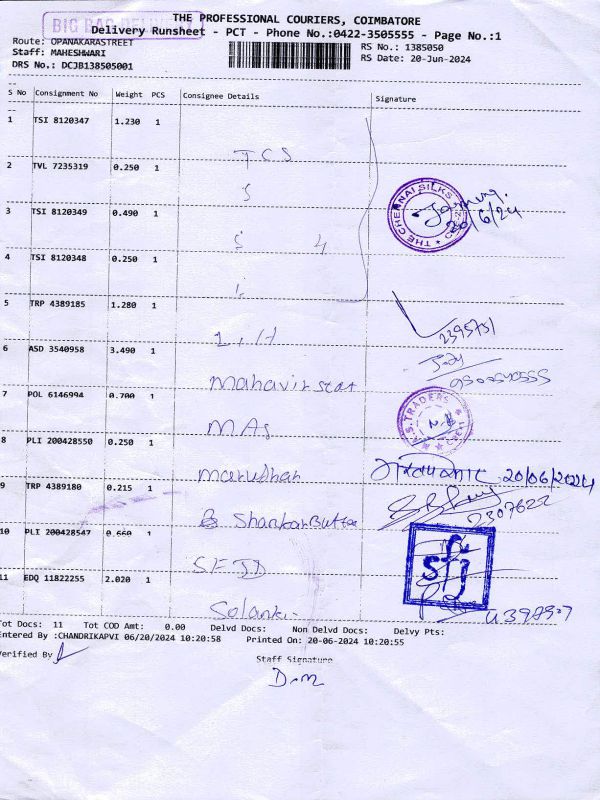 BIG BAG DELIVERY
THE PROFESSIONAL COURIERS, COIMBATORE
Delivery Runsheet - PCT - Phone No.:0422-3505555 - Page No.:1
Route: OPANAKARASTREET
RS No.: 1385050
Staff: MAHESHWARI
RS Date: 20-Jun-2024
DRS No.: DCJB138505001
S No Consignment No Weight PCS Consignee Details Signature
1 TSI 8120347 1.230 1
TCS
2 TVL 7235319 0.250 1
THE CHENNAI SILKS
20/6/24
3 TSI 8120349 0.490 1
4 TSI 8120348 0.250 1
5 TRP 4389185 1.280 1
2395751
6 ASD 3540958 3.490 1
Mahavir Star
7 POL 6146994 0.700 1
M.A.S. TRADERS
MAS
8 PLI 200428550 0.250 1
Marudhar 20/06/2024
9 TRP 4389180 0.215 1
2307622
Shankar Butta
10 PLI 200428547 0.660 1
sfj
SFJD
11 EDQ 11822255 2.020 1
Solanki
Tot Docs: 11 Tot COD Amt: 0.00 Delvd Docs: Non Delvd Docs: Delvy Pts:
Entered By :CHANDRIKAPVI 06/20/2024 10:20:58 Printed On: 20-06-2024 10:20:55
Verified By
Staff Signature